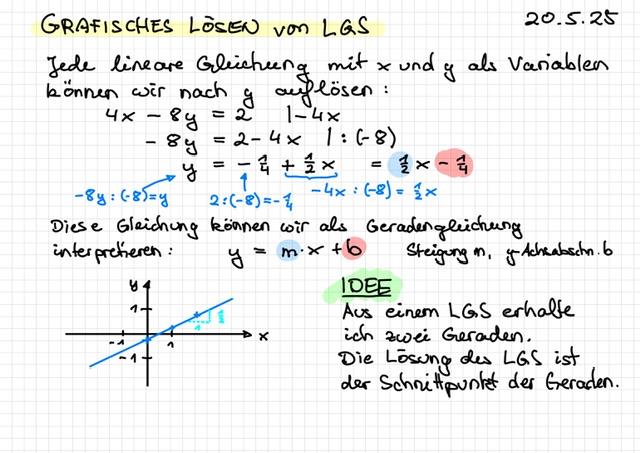 GRAFISCHES LÖSEN von LGS 20.5.25
Jede lineare Gleichung mit x und y als Variablen
können wir nach y auflösen:
4x - 8y = 2 |-4x
- 8y = 2 - 4x |:(-8)
y = - 1/4 + 1/2 x = 1/2 x - 1/4
-8y:(-8)=y 2:(-8)=-1/4 -4x:(-8)=1/2 x
Diese Gleichung können wir als Geradengleichung
interpretieren: y = m·x + b Steigung m, y-Achsabschn. b
y
1
-1 1 x
-1
1 1/2
IDEE
Aus einem LGS erhalte
ich zwei Geraden.
Die Lösung des LGS ist
der Schnittpunkt der Geraden.